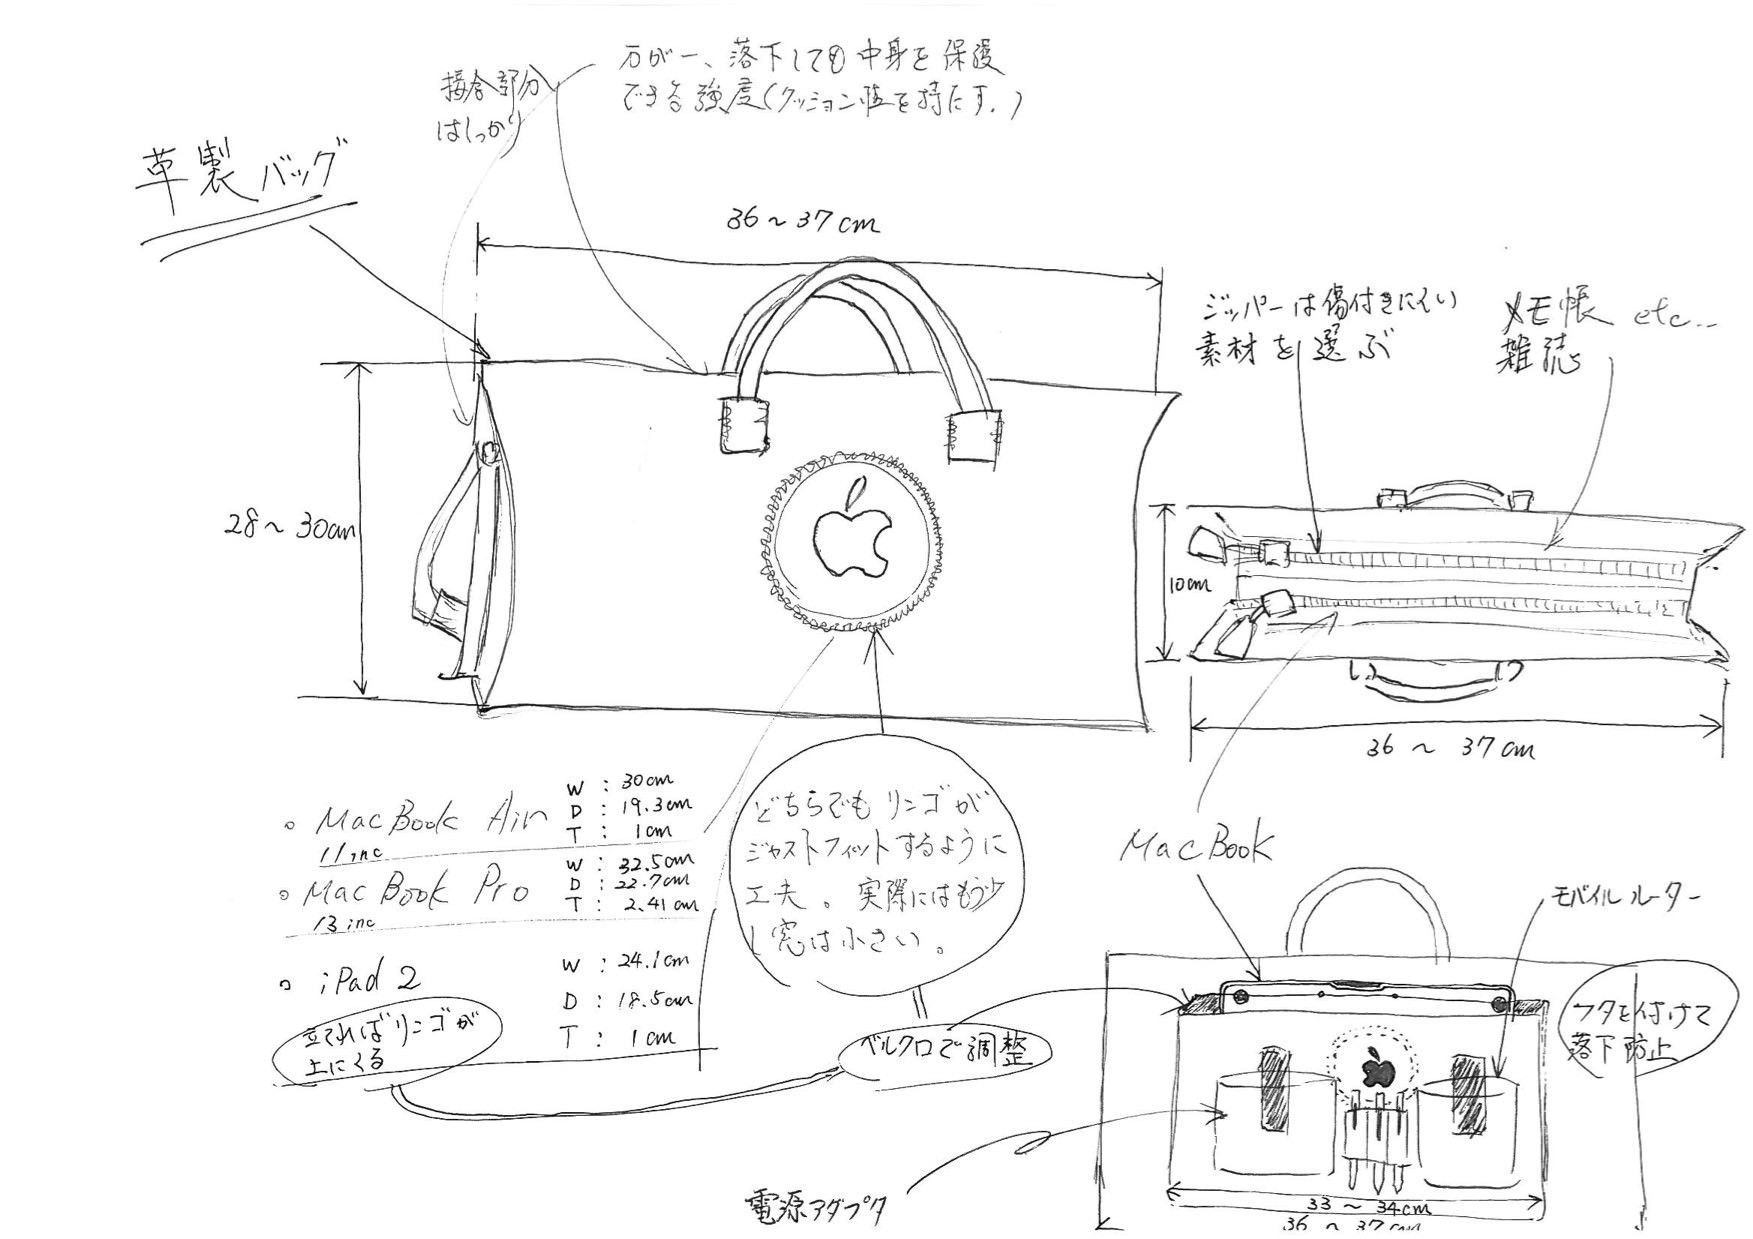 万が一、落下しても中身を保護
できる強度(クッション性を持たす.)
接合部分
はしっかり
革製バッグ
36〜37cm
ジッパーは傷付きにくい
素材を選ぶ
メモ帳 etc...
雑誌
28〜30cm
10cm
36〜37cm
MacBook Air
11inc
W : 30cm
D : 19.3cm
T : 1cm
MacBook Pro
13inc
W : 32.5cm
D : 22.7cm
T : 2.41cm
iPad 2
W : 24.1cm
D : 18.5cm
T : 1cm
立てればリンゴが
上にくる
どちらでもリンゴが
ジャストフィットするように
工夫。実際にはもう少
し窓は小さい。
ベルクロで調整
MacBook
モバイルルーター
フタを付けて
落下防止
電源アダプタ
33〜34cm
36〜37cm